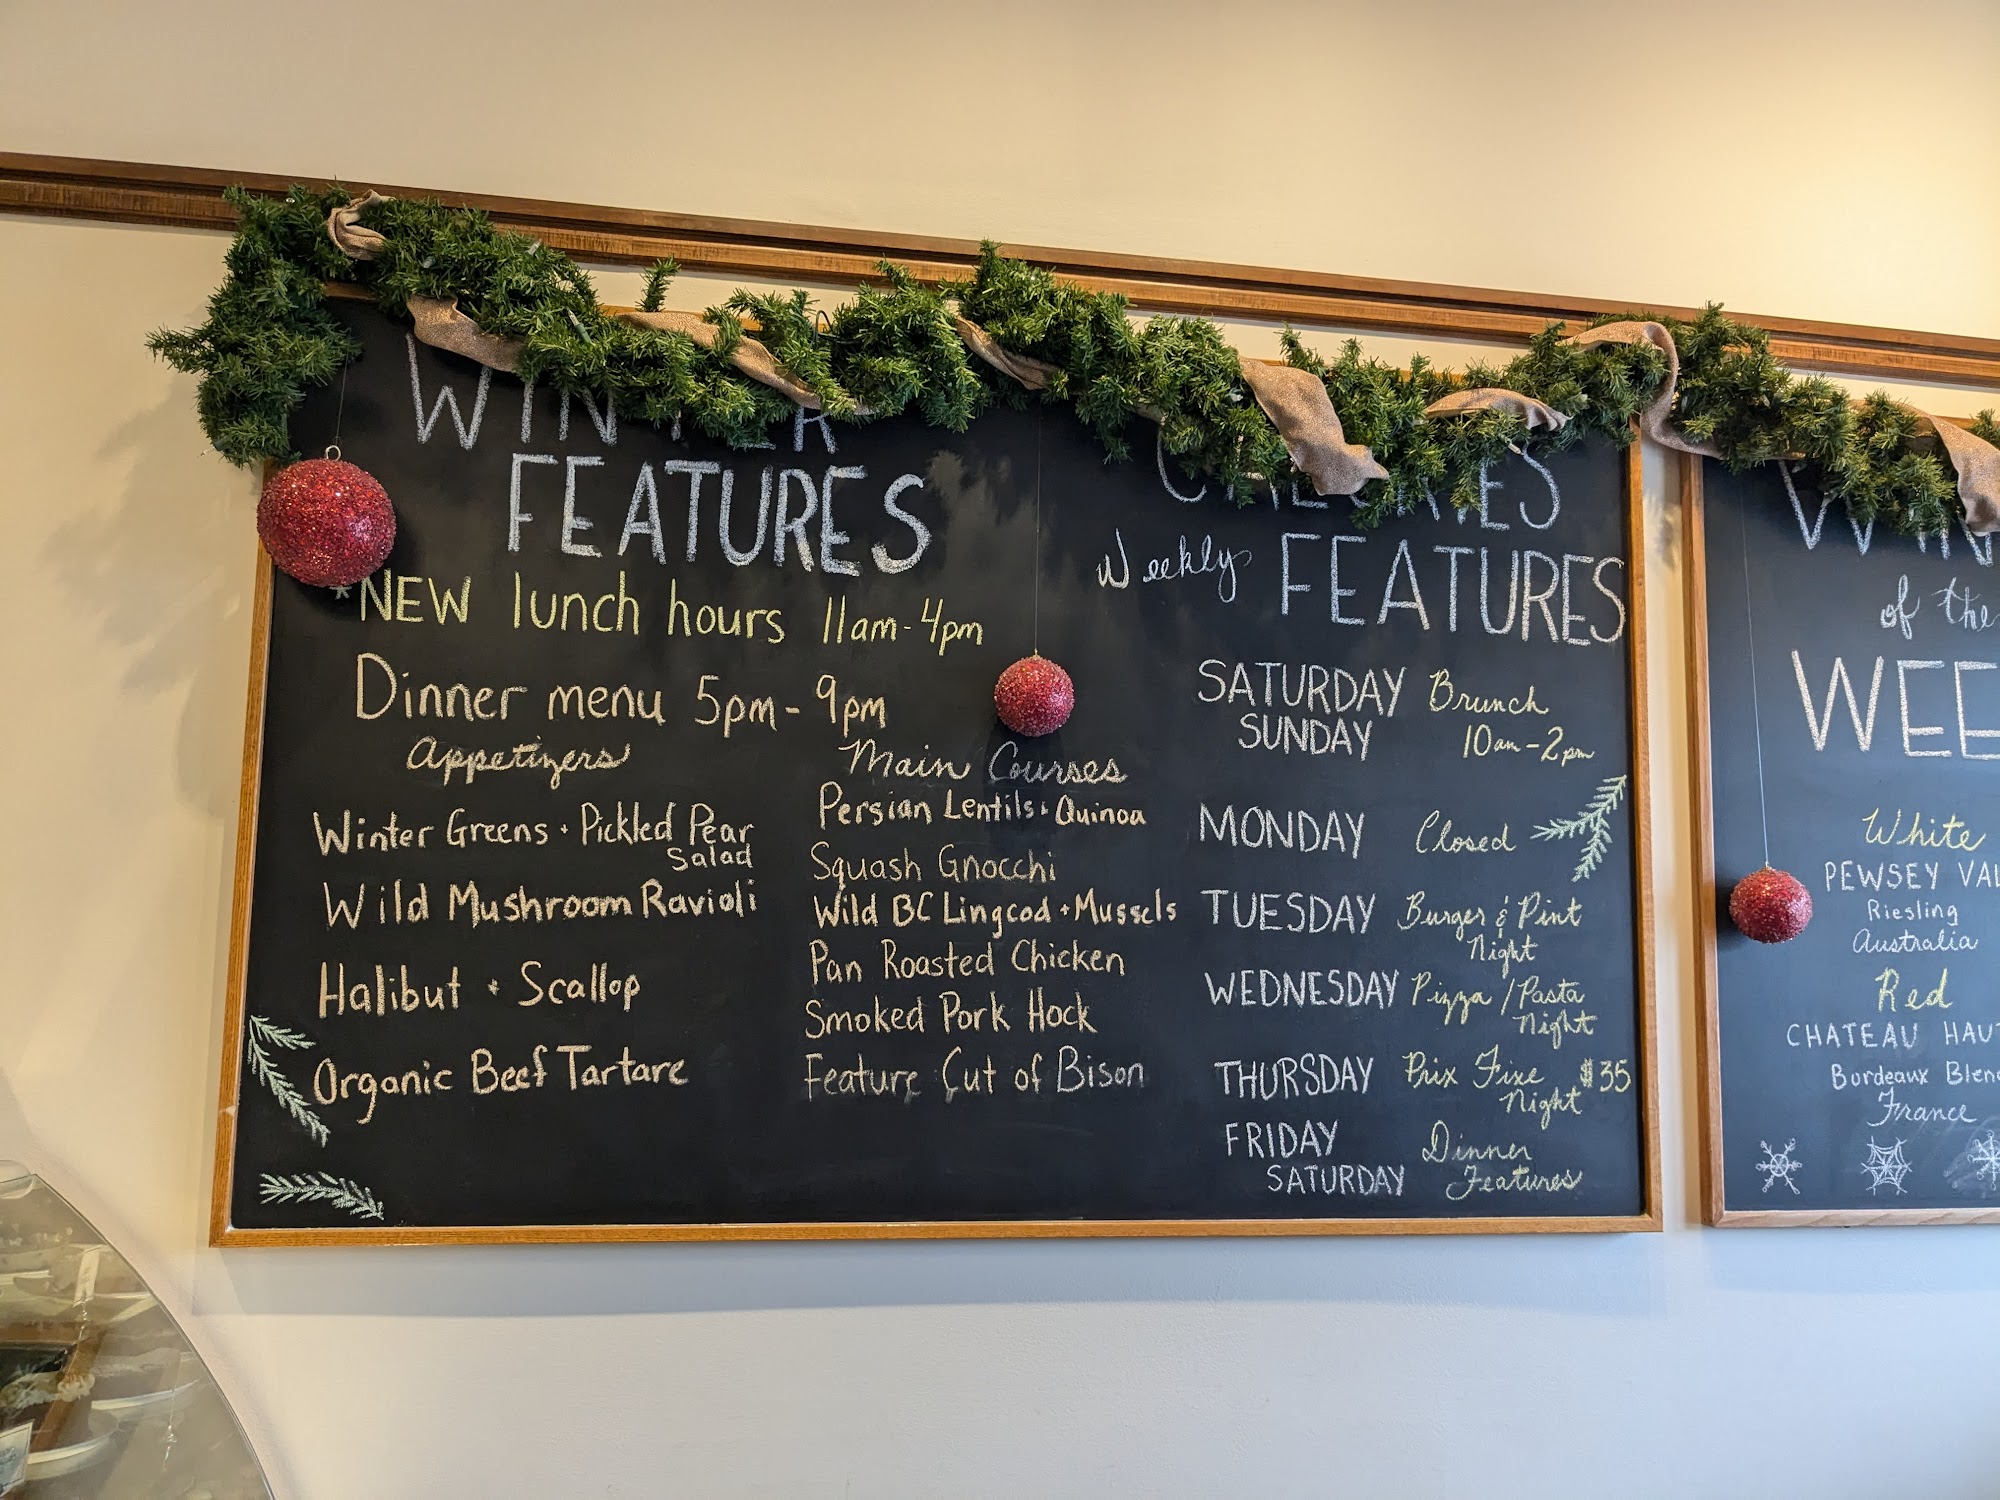 WINTER
FEATURES
*NEW lunch hours 11am-4pm
Dinner menu 5pm-9pm
Appetizers
Winter Greens + Pickled Pear
Salad
Wild Mushroom Ravioli
Halibut + Scallop
Organic Beef Tartare
Main Courses
Persian Lentils + Quinoa
Squash Gnocchi
Wild BC Lingcod + Mussels
Pan Roasted Chicken
Smoked Pork Hock
Feature Cut of Bison
Weekly FEATURES
SATURDAY Brunch
SUNDAY 10am-2pm
MONDAY Closed
TUESDAY Burger & Pint
Night
WEDNESDAY Pizza/Pasta
Night
THURSDAY Prix Fixe $35
Night
FRIDAY Dinner
SATURDAY Features
of the
White
PEWSEY
Riesling
Australia
Red
CHATEAU
Bordeaux
France